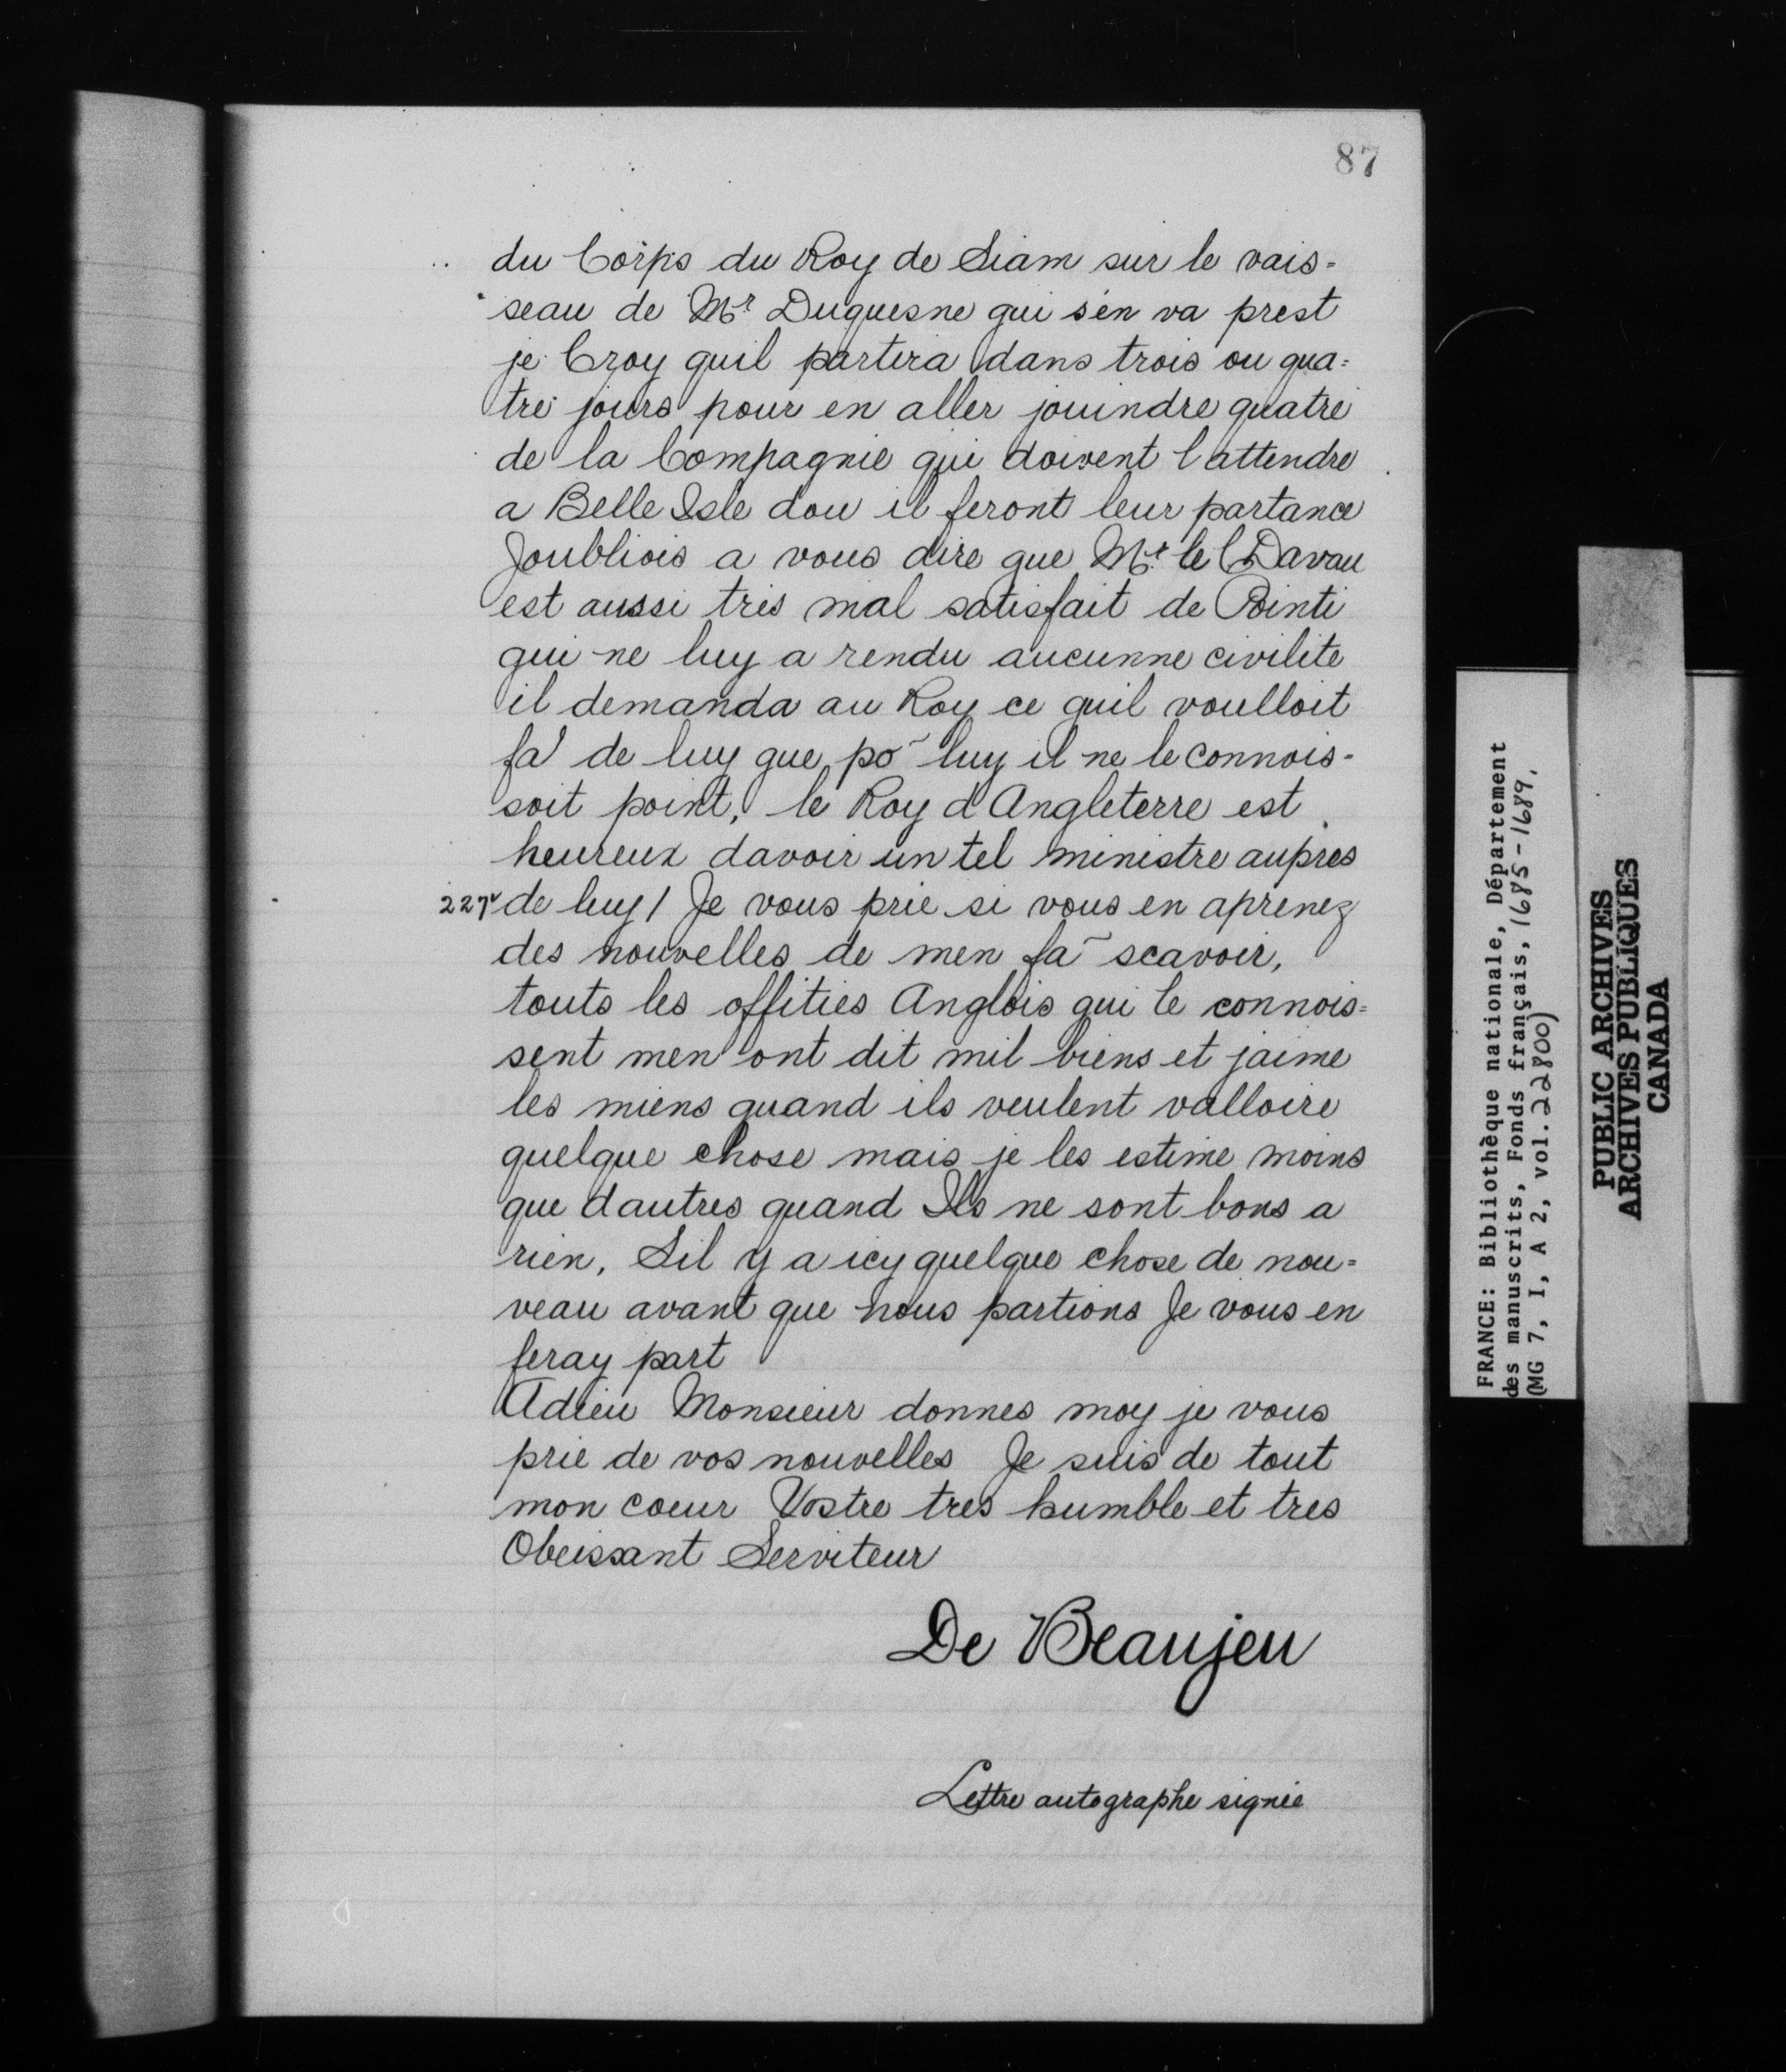 87
du Corps du Roy de Siam sur le vais=
seau de Mr Duquesne qui s'en va prest
je Croy quil partira dans trois ou qua=
tre jours pour en aller jouindre quatre
de la Compagnie qui doivent l attendre
a Belle Isle dou il feront leur partance
Joubliois a vous dire que Mr le C Davau
est aussi tres mal satisfait de Pointi
qui ne luy a rendu aucunne civilite
il demanda au Roy ce quil voulloit
fa de luy que po luy il ne le connois-
soit point, le Roy d Angleterre est
heureux davoir un tel ministre aupres
227v de luy / Je vous prie si vous en aprenez
des nouvelles de men fa scavoir,
touts les offities Anglois qui le connois=
sent men ont dit mil biens et jaime
les miens quand ils veulent valloire
quelque chose mais je les estime moins
que dautres quand Ils ne sont bons a
rien, Sil y a icy quelque chose de nou=
veau avant que nous partions Je vous en
feray part
Adieu Monsieur donnes moy je vous
prie de vos nouvelles Je suis de tout
mon coeur Vostre tres humble et tres
Obeissant Serviteur
De Beaujeu
Lettre autographe signée
FRANCE: Bibliothèque nationale, Département
des manuscrits, Fonds français, 1685-1689.
(MG 7, I, A 2, vol. 22800)
PUBLIC ARCHIVES
ARCHIVES PUBLIQUES
CANADA